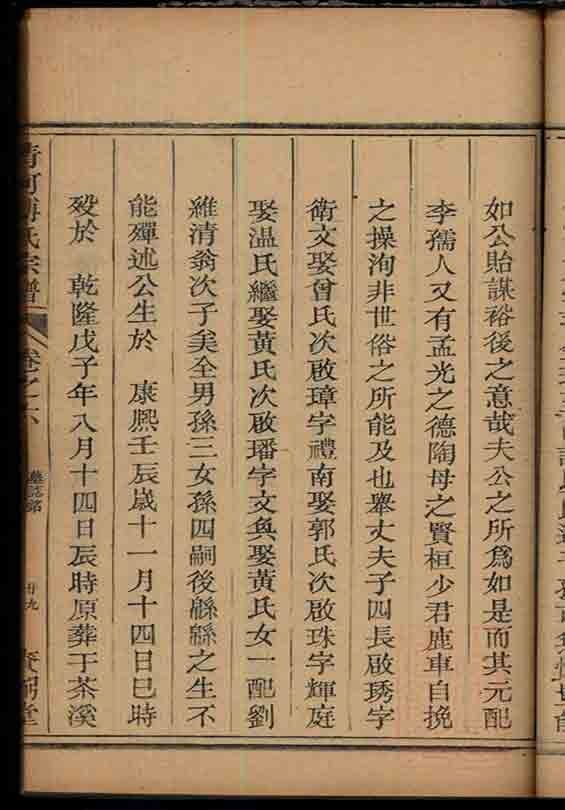 如公貽謀裕後之意哉夫公之所爲如是而其元配
李孺人又有孟光之德陶母之賢桓少君鹿車自挽
之操洵非世俗之所能及也舉丈夫子四長啟琇字
衛文娶曾氏次啟璋字禮南娶郭氏次啟珠字輝庭
娶温氏繼娶黃氏次啟璠字文與娶黃氏女一配劉
維清翁次子矣全男孫三女孫四嗣後緜緜之生不
能殫述公生於 康熙壬辰歲十一月十四日巳時
歿於 乾隆戊子年八月十四日辰時原葬于茶溪
清河傅氏宗譜 卷之六 墓誌銘 廿九